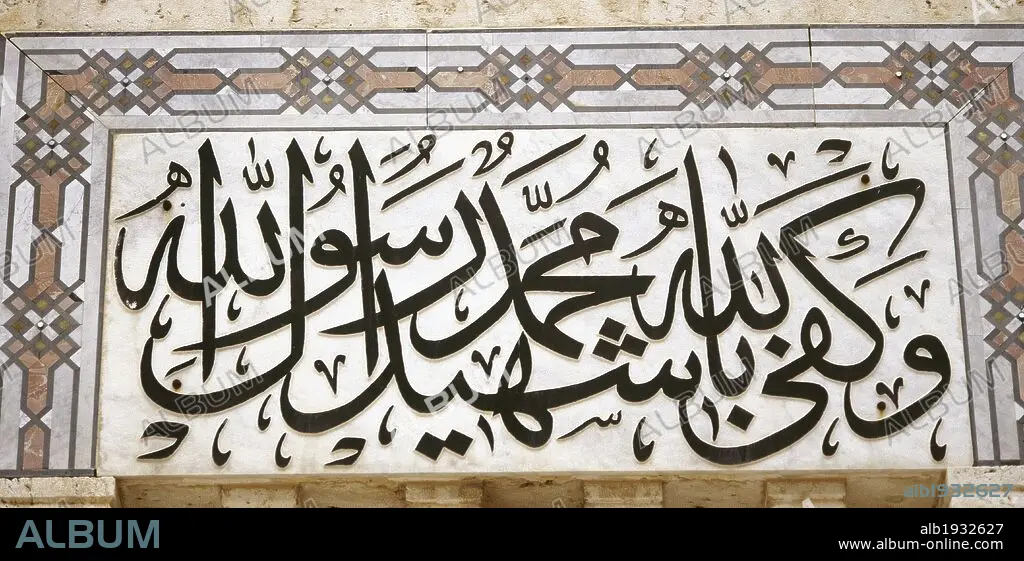 وكفى بالله شهيدا محمد رسول الله
ALBUM
alb1932627
alb1932627
www.album-online.com